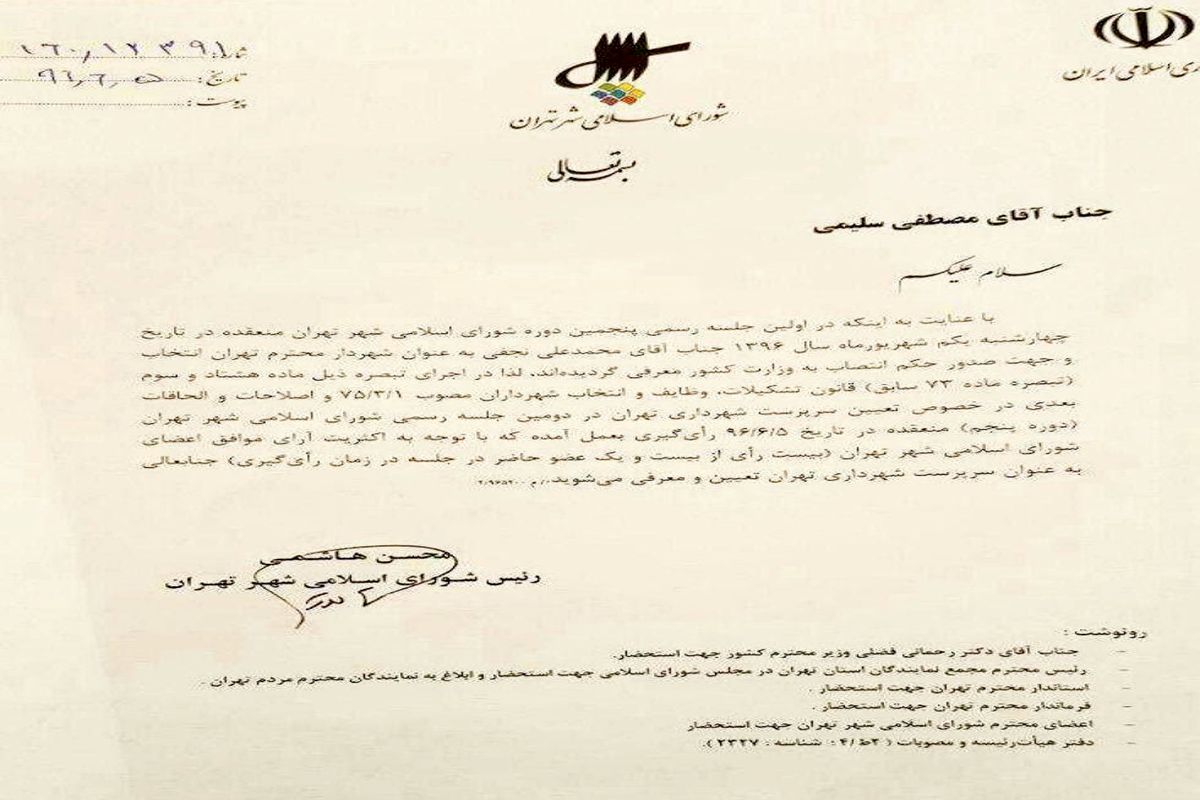 ری اسلامی ایران
شورای اسلامی شهر تهران
شماره: ۱۶۰/۱۲۳۹۱
تاریخ: ۹۶/۶/۵
پیوست:
بسمه تعالی
جناب آقای مصطفی سلیمی
سلام علیکم
با عنایت به اینکه در اولین جلسه رسمی پنجمین دوره شورای اسلامی شهر تهران منعقده در تاریخ
چهارشنبه یکم شهریورماه سال ۱۳۹۶ جناب آقای محمدعلی نجفی به عنوان شهردار محترم تهران انتخاب
و جهت صدور حکم انتصاب به وزارت کشور معرفی گردیده‌اند، لذا در اجرای تبصره ذیل ماده هشتاد و سوم
(تبصره ماده ۷۳ سابق) قانون تشکیلات، وظایف و انتخاب شهرداران مصوب ۷۵/۳/۱ و اصلاحات و الحاقات
بعدی در خصوص تعیین سرپرست شهرداری تهران در دومین جلسه رسمی شورای اسلامی شهر تهران
(دوره پنجم) منعقده در تاریخ ۹۶/۶/۵ رأی‌گیری بعمل آمده که با توجه به اکثریت آرای موافق اعضای
شورای اسلامی شهر تهران (بیست رأی از بیست و یک عضو حاضر در جلسه در زمان رأی‌گیری) جنابعالی
به عنوان سرپرست شهرداری تهران تعیین و معرفی می‌شوید.
محسن هاشمی
رئیس شورای اسلامی شهر تهران
رونوشت :
- جناب آقای دکتر رحمانی فضلی وزیر محترم کشور جهت استحضار.
- رئیس محترم مجمع نمایندگان استان تهران در مجلس شورای اسلامی جهت استحضار و ابلاغ به نمایندگان محترم مردم تهران .
- استاندار محترم تهران جهت استحضار .
- فرماندار محترم تهران جهت استحضار .
- اعضای محترم شورای اسلامی شهر تهران جهت استحضار
- دفتر هیأت‌رئیسه و مصوبات ( ۲ط/۴ : شناسه : ۲۳۲۷ ).